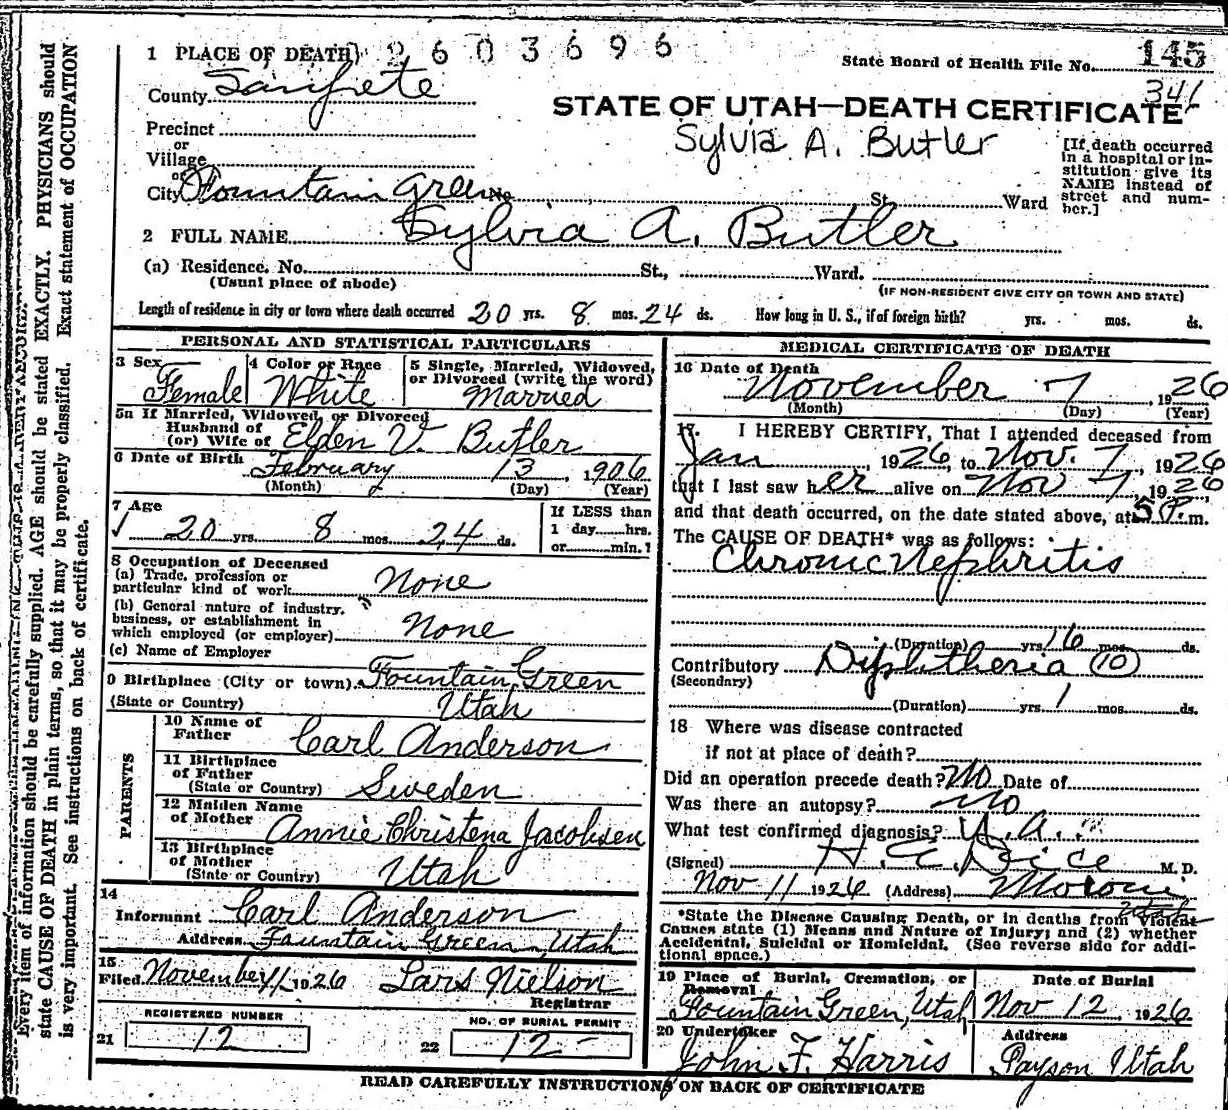 1 PLACE OF DEATH 2603696
State Board of Health File No. 145
County Sanpete
341
STATE OF UTAH—DEATH CERTIFICATE
Precinct
or
Village
or
City Fountain Green No. St. Ward
Sylvia A. Butler
[If death occurred
in a hospital or in-
stitution give its
NAME instead of
street and num-
ber.]
2 FULL NAME Sylvia A. Butler
(a) Residence. No. St., Ward.
(Usual place of abode)
(IF NON-RESIDENT GIVE CITY OR TOWN AND STATE)
Length of residence in city or town where death occurred 20 yrs. 8 mos. 24 ds. How long in U. S., if of foreign birth? yrs. mos. ds.
PERSONAL AND STATISTICAL PARTICULARS
3 Sex Female
4 Color or Race White
5 Single, Married, Widowed,
or Divorced (write the word)
Married
5a If Married, Widowed, or Divorced
Husband of
(or) Wife of Elden V. Butler
6 Date of Birth February 13, 1906
(Month) (Day) (Year)
7 Age
20 yrs. 8 mos. 24 ds.
If LESS than
1 day hrs.
or min.?
8 Occupation of Deceased
(a) Trade, profession or
particular kind of work None
(b) General nature of industry,
business, or establishment in
which employed (or employer) None
(c) Name of Employer
9 Birthplace (City or town) Fountain Green
(State or Country) Utah
PARENTS
10 Name of
Father Carl Anderson
11 Birthplace
of Father
(State or Country) Sweden
12 Maiden Name
of Mother Annie Christena Jacobsen
13 Birthplace
of Mother
(State or Country) Utah
14
Informant Carl Anderson
Address Fountain Green, Utah
15
Filed November 11 1926 Lars Nielson
Registrar
REGISTERED NUMBER
21 12
NO. OF BURIAL PERMIT
22 12
MEDICAL CERTIFICATE OF DEATH
16 Date of Death
November 7, 1926
(Month) (Day) (Year)
17. I HEREBY CERTIFY, That I attended deceased from
Jan, 1926, to Nov. 7, 1926
that I last saw her alive on Nov 7, 1926
and that death occurred, on the date stated above, at 5 P. m.
The CAUSE OF DEATH* was as follows:
Chronic Nephritis
(Duration) yrs. 16 mos. ds.
Contributory Diphtheria (10)
(Secondary)
(Duration) yrs. 1 mos. ds.
18 Where was disease contracted
if not at place of death?
Did an operation precede death? No Date of
Was there an autopsy? No
What test confirmed diagnosis? U.A.
(Signed) H. C. M.D.
Nov 11 1926 (Address) Moroni
Utah
*State the Disease Causing Death, or in deaths from Violent
Causes state (1) Means and Nature of Injury; and (2) whether
Accidental, Suicidal or Homicidal. (See reverse side for addi-
tional space.)
19 Place of Burial, Cremation, or
Removal
Fountain Green, Utah
Date of Burial
Nov 12 1926
20 Undertaker
John F. Harris
Address
Payson Utah
READ CAREFULLY INSTRUCTIONS ON BACK OF CERTIFICATE
Every item of information should be carefully supplied. AGE should be stated EXACTLY. PHYSICIANS should
state CAUSE OF DEATH in plain terms, so that it may be properly classified. Exact statement of OCCUPATION
is very important. See instructions on back of certificate.